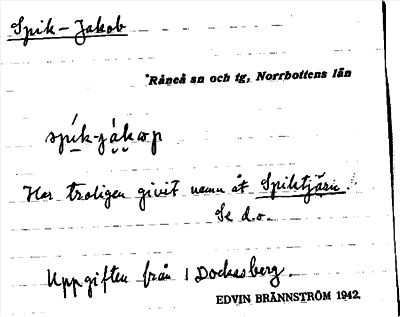 Spik-Jakob
Råneå sn och tg, Norrbottens län
spík-jákɷp
Har troligen givit namn åt Spiktjärn.
Se d.o.
Uppgiften från 1 Dockasberg.
EDVIN BRÄNNSTRÖM 1942.